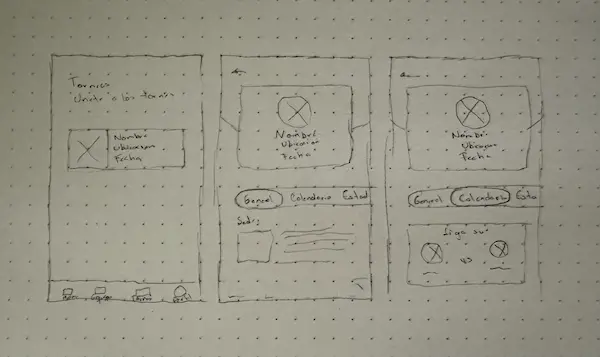 Torneos
Unirte a los torneos
Nombre
Ubicacion
Fecha
Nombre
Ubicacion
Fecha
General Calendario Estad
Sedes
Nombre
Ubicacion
Fecha
General Calendario Esta
Liga
vs